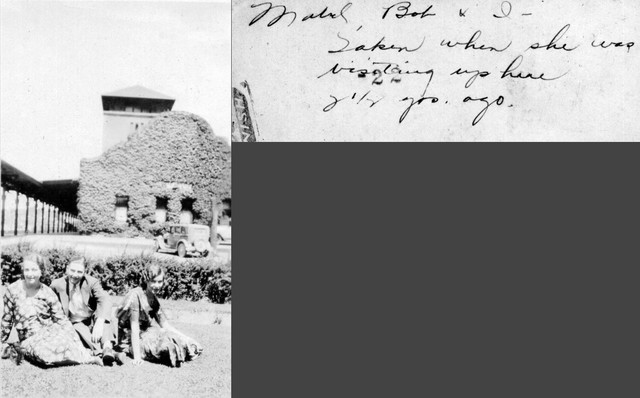 Mabel, Bob & I -
Taken when she was
visiting up here
2 1/2 yrs. ago.
22